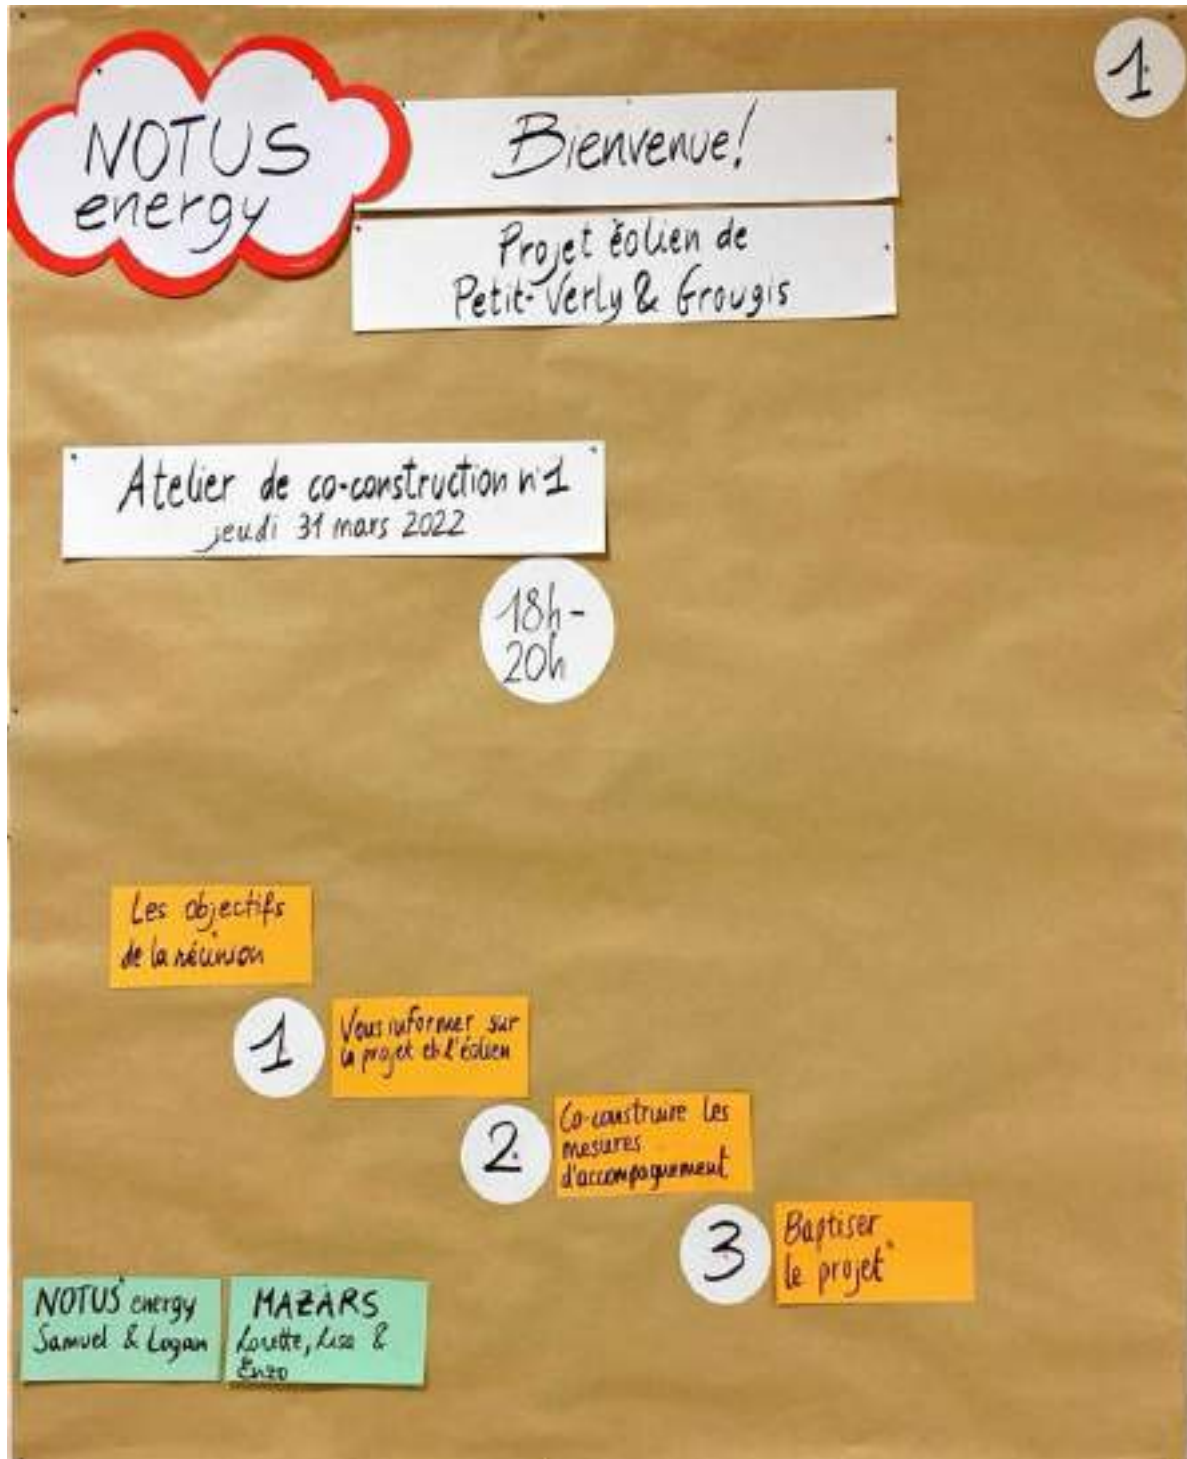 1
NOTUS
energy
Bienvenue!
Projet éolien de
Petit-Verly & Grougis
Atelier de co-construction n°1
jeudi 31 mars 2022
18h-
20h
Les objectifs
de la réunion
1
Vous informer sur
le projet et l'éolien
2
Co-construire les
mesures
d'accompagnement
3
Baptiser
le projet
NOTUS energy
Samuel & Logan
MAZARS
Lorette, Lisa &
Enzo